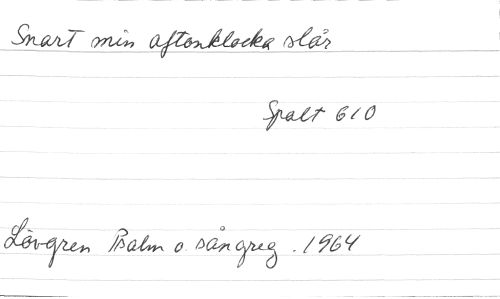 Snart min aftonklocka slår
Spalt 610
Lövgren Psalm o. sångreg. 1964